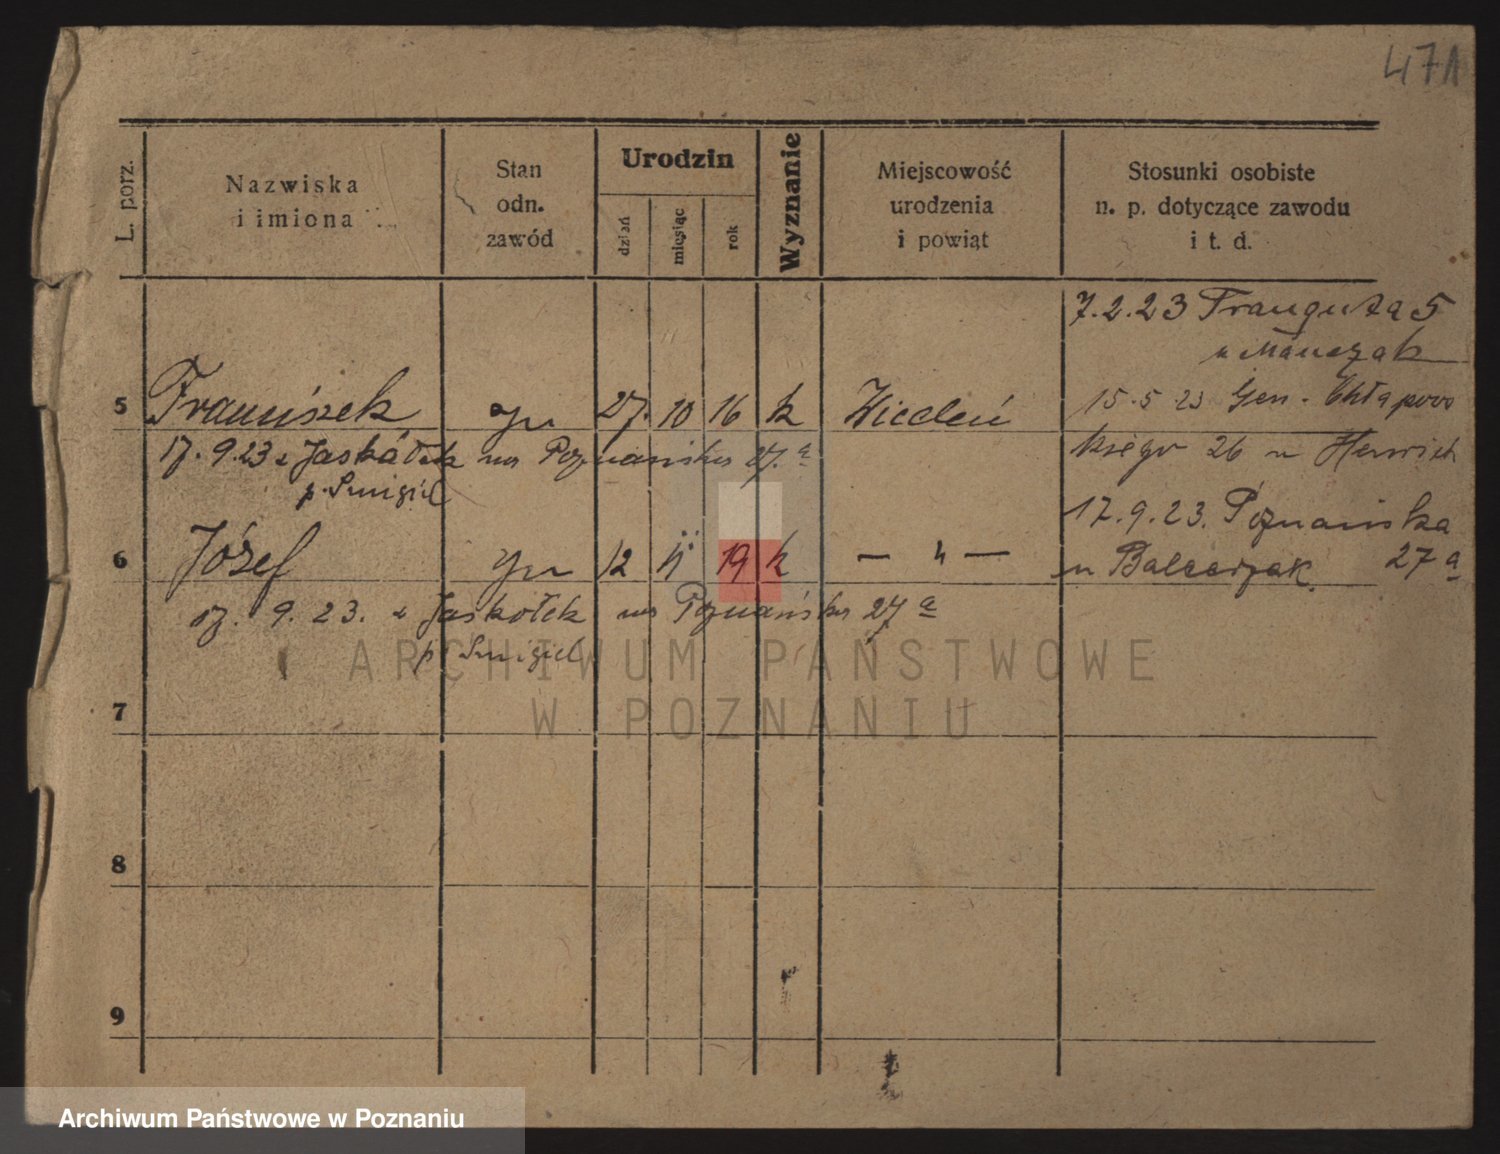 471
L. porz.
Nazwiska
i imiona
Stan
odn.
zawód
Urodzin
dzień
miesiąc
rok
Wyznanie
Miejscowość
urodzenia
i powiąt
Stosunki osobiste
n. p. dotyczące zawodu
i t. d.
7.2.23 Trauguta 5
u Mańczak
15.5 23 Gen. Chłapows
5 Franciszek 27. 10 16 k Wiedeń
kiego 26 u Henrich
17.9.23 z Jaskółek na Poznańska 27.a
p. Śmigiel
17.9.23. Poznańska
27 a
6 Józef 12 11 19 k — " —
u Balcerzak.
17. 9. 23. z Jaskółek na Poznańska 27 a
p. Śmigiel
ARCHIWUM PAŃSTWOWE
W POZNANIU
7
8
9
Archiwum Państwowe w Poznaniu